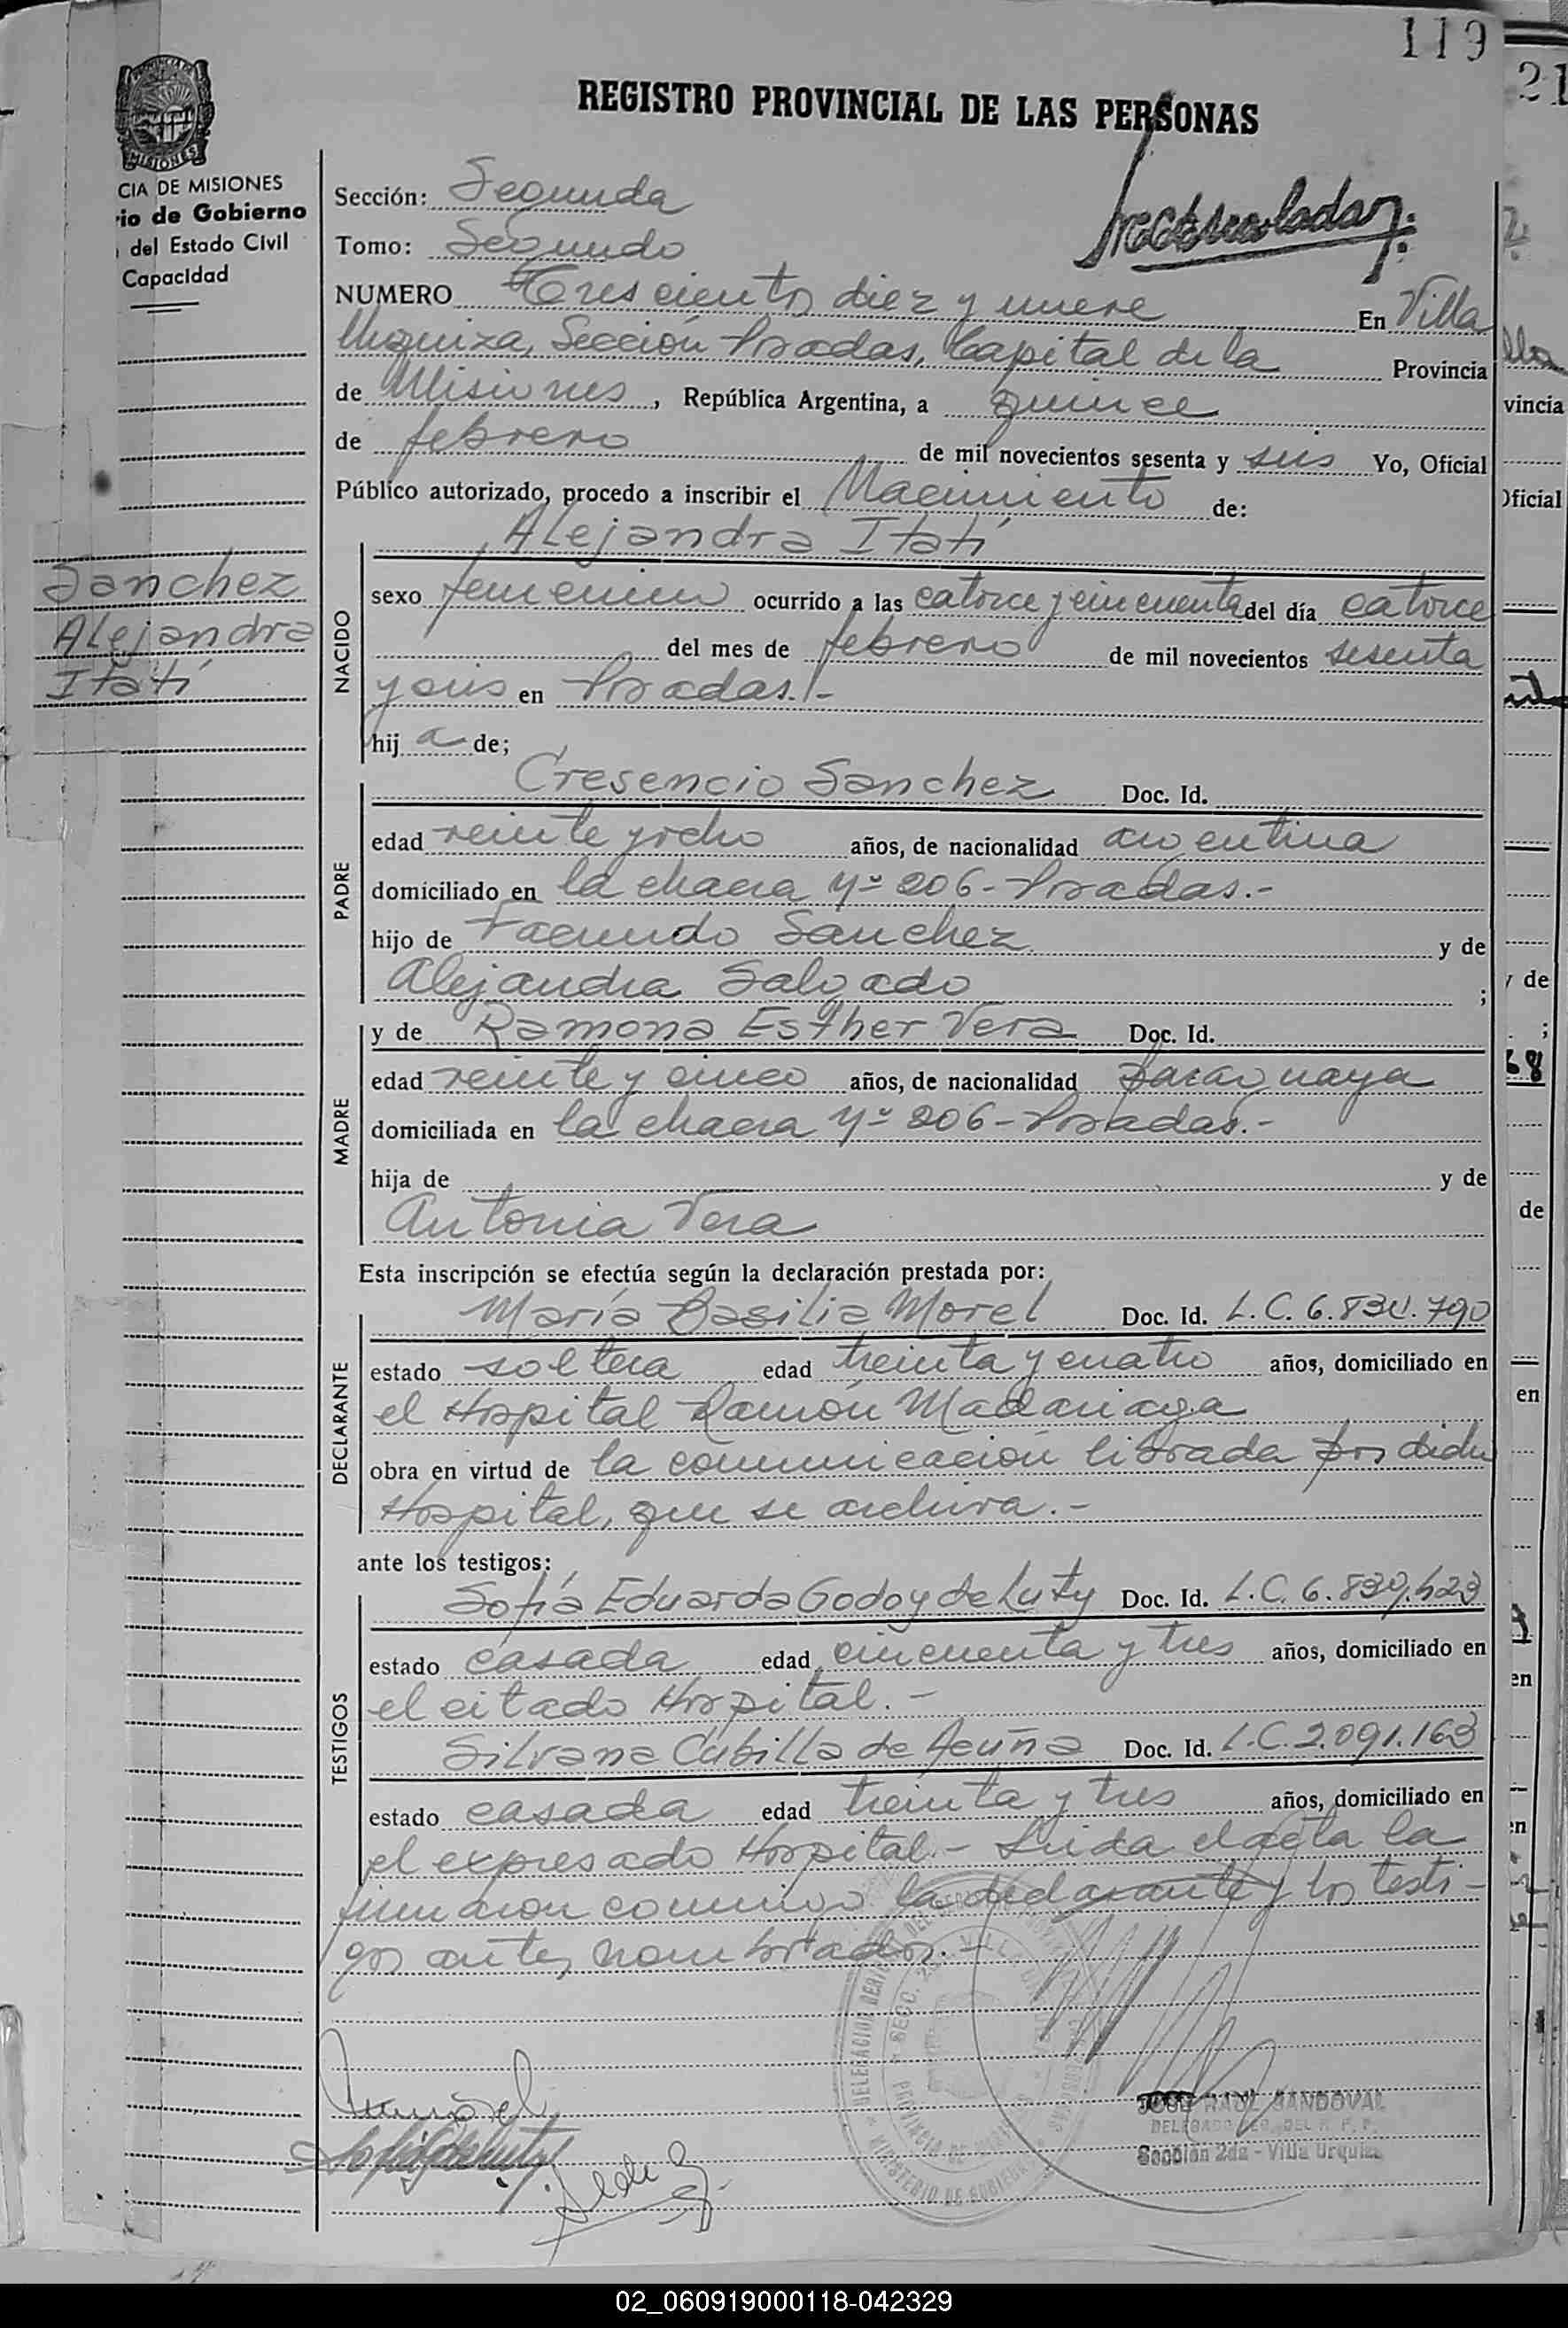 119
21
PROVINCIA DE
MISIONES
REGISTRO PROVINCIAL DE LAS PERSONAS
CIA DE MISIONES
io de Gobierno
del Estado Civil
Capacidad
Sección: Segunda
Tomo: Segundo
NUMERO Tres cientos diez y nueve En Villa
Urquiza, Sección Posadas, Capital de la Provincia
de Misiones, República Argentina, a quince
de febrero de mil novecientos sesenta y seis Yo, Oficial
Público autorizado, procedo a inscribir el Nacimiento de:
Alejandra Itatí
Sanchez
Alejandra
Itatí
NACIDO
sexo femenino ocurrido a las catorce y cincuenta del día catorce
del mes de febrero de mil novecientos sesenta
y seis en Posadas.-
hij a de;
PADRE
Cresencio Sanchez Doc. Id.
edad veinte y ocho años, de nacionalidad argentina
domiciliado en la chacra Nº 206 - Posadas.-
hijo de Facundo Sanchez y de
Alejandra Salgado ;
MADRE
y de Ramona Esther Vera Doc. Id.
edad veinte y cinco años, de nacionalidad paraguaya
domiciliada en la chacra Nº 206 - Posadas.-
hija de y de
Antonia Vera
Esta inscripción se efectúa según la declaración prestada por:
DECLARANTE
María Basilia Morel Doc. Id. L.C. 6.830.790
estado soltera edad treinta y cuatro años, domiciliado en
el Hospital Ramón Madariaga
obra en virtud de la comunicación librada por dicho
Hospital, que se archiva.-
ante los testigos:
TESTIGOS
Sofía Eduarda Godoy de Luty Doc. Id. L.C. 6.839.423
estado casada edad cincuenta y tres años, domiciliado en
el citado Hospital.-
Silvana Cubilla de Acuña Doc. Id. L.C. 2.091.163
estado casada edad treinta y tres años, domiciliado en
el expresado Hospital.- Leida el acta la
firmaron conmigo la declarante y los testi-
gos antes nombrados.-
JOSE RAUL SANDOVAL
Sección 2da - Villa Urquiza
02_060919000118-042329